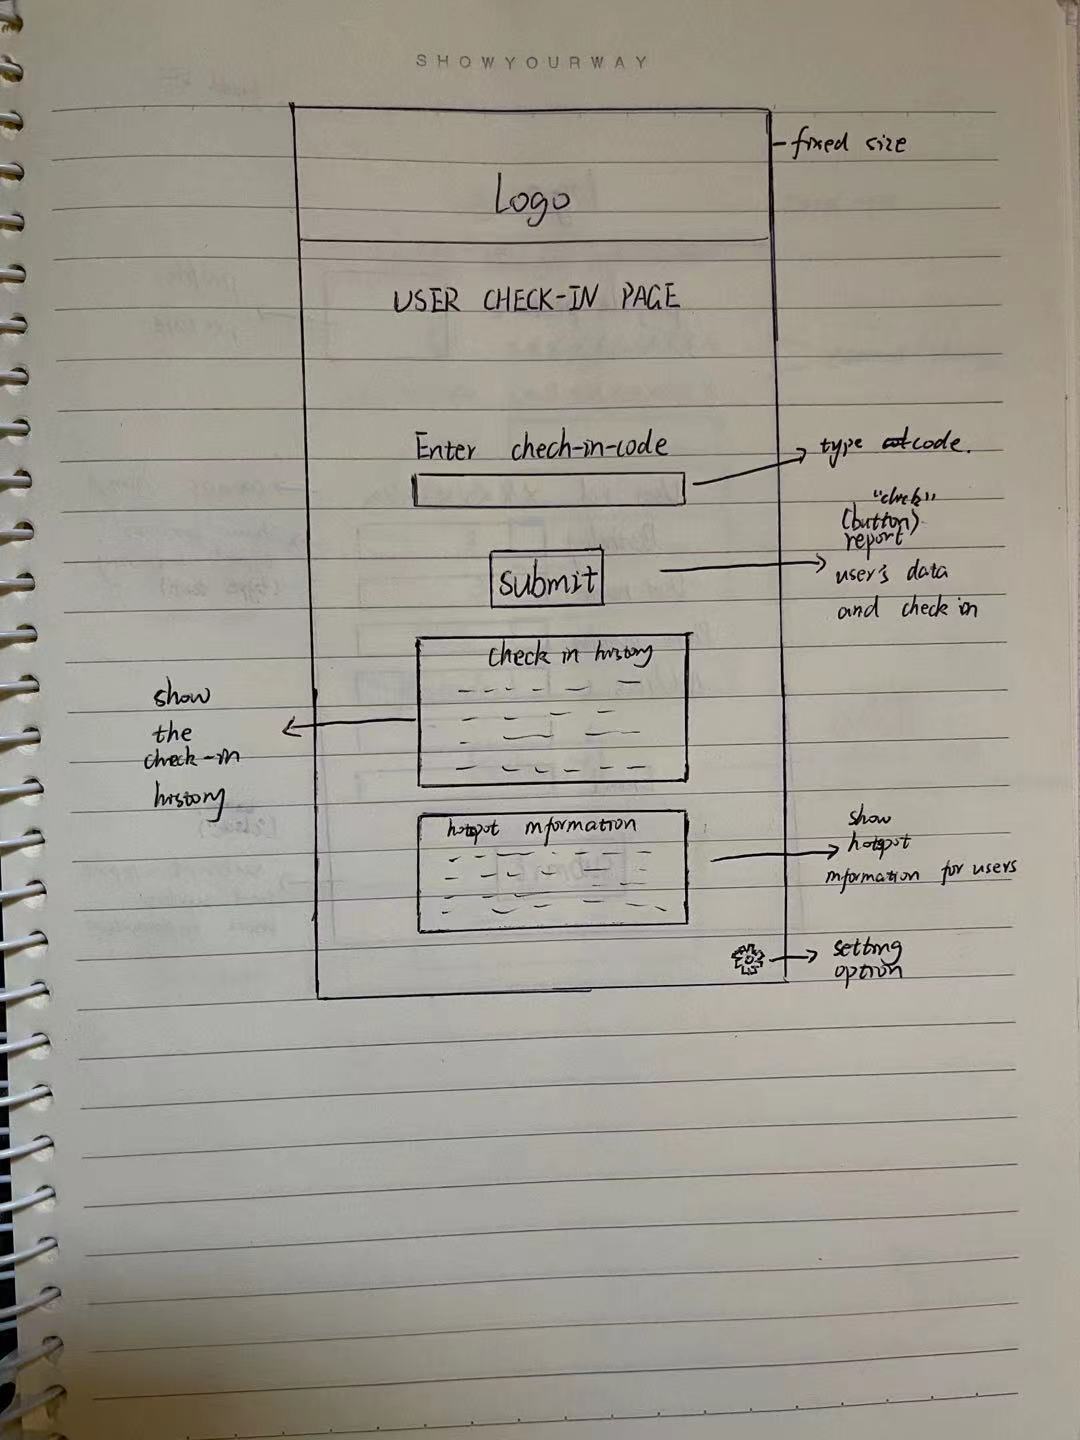 SHOWYOURWAY
fixed size
Logo
USER CHECK-IN PAGE
Enter chech-in-code
type code.
(button)
report
user's data
and check in
submit
check in history
show
the
check-in
history
hotspot information
show
hotspot
information for users
setting
option